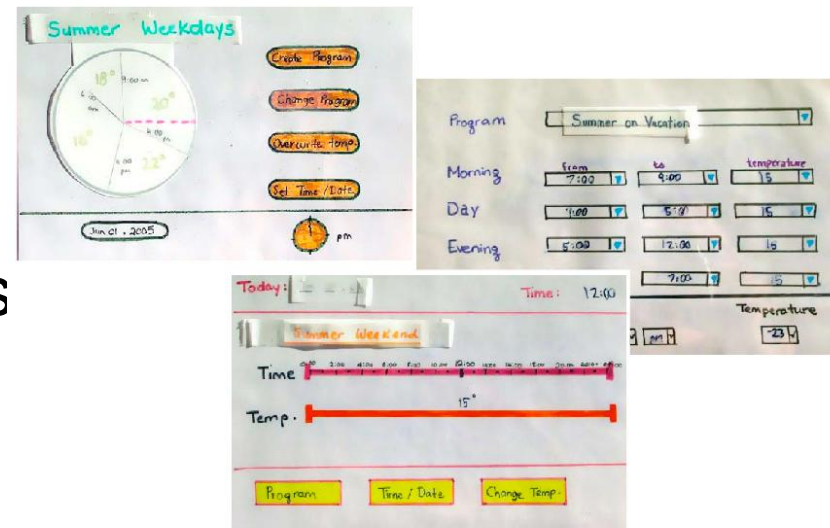 Summer Weekdays
18°
9:00 am
20°
16°
22°
Create Program
Change Program
Overwrite temp.
Set Time / Date
Jun 01, 2005
pm
Program
Summer on Vacation
from
to
temperature
Morning
7:00
9:00
15
Day
9:00
5:00
15
Evening
5:00
12:00
15
7:00
15
Temperature
pm
-23
s
Today:
Time: 12:00
Summer Weekend
Time
2:00
4:00
6:00
8:00
10:00
12:00
Temp.
15°
Program
Time / Date
Change Temp.